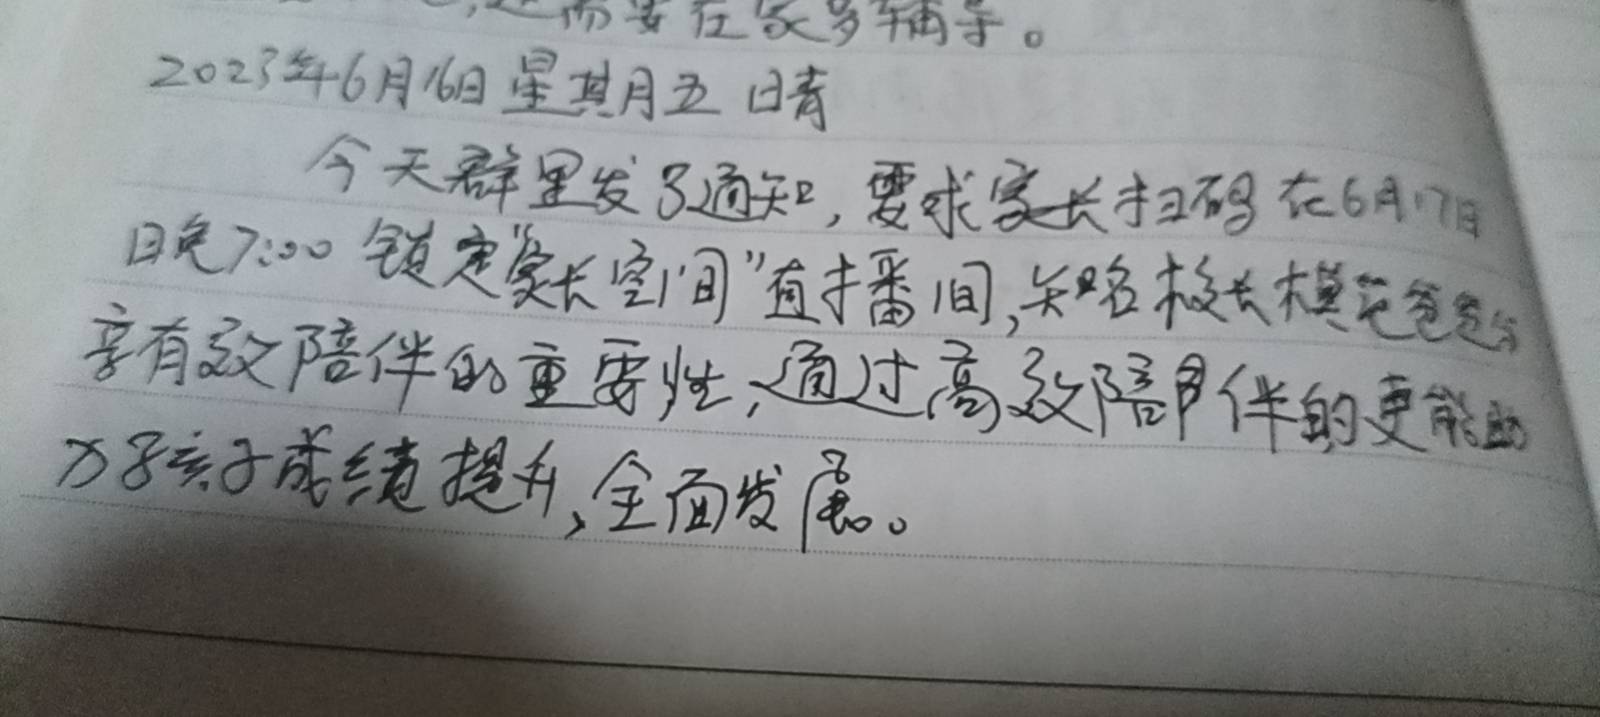 还需要在家多辅导。
2023年6月16日 星期五 晴
今天群里发了通知,要求家长扫码在6月17日
日晚7:00 锁定"家长空间"直播间,知名校长模范爸爸分
享有效陪伴的重要性,通过高效陪伴的更能助
力孩子成绩提升,全面发展。